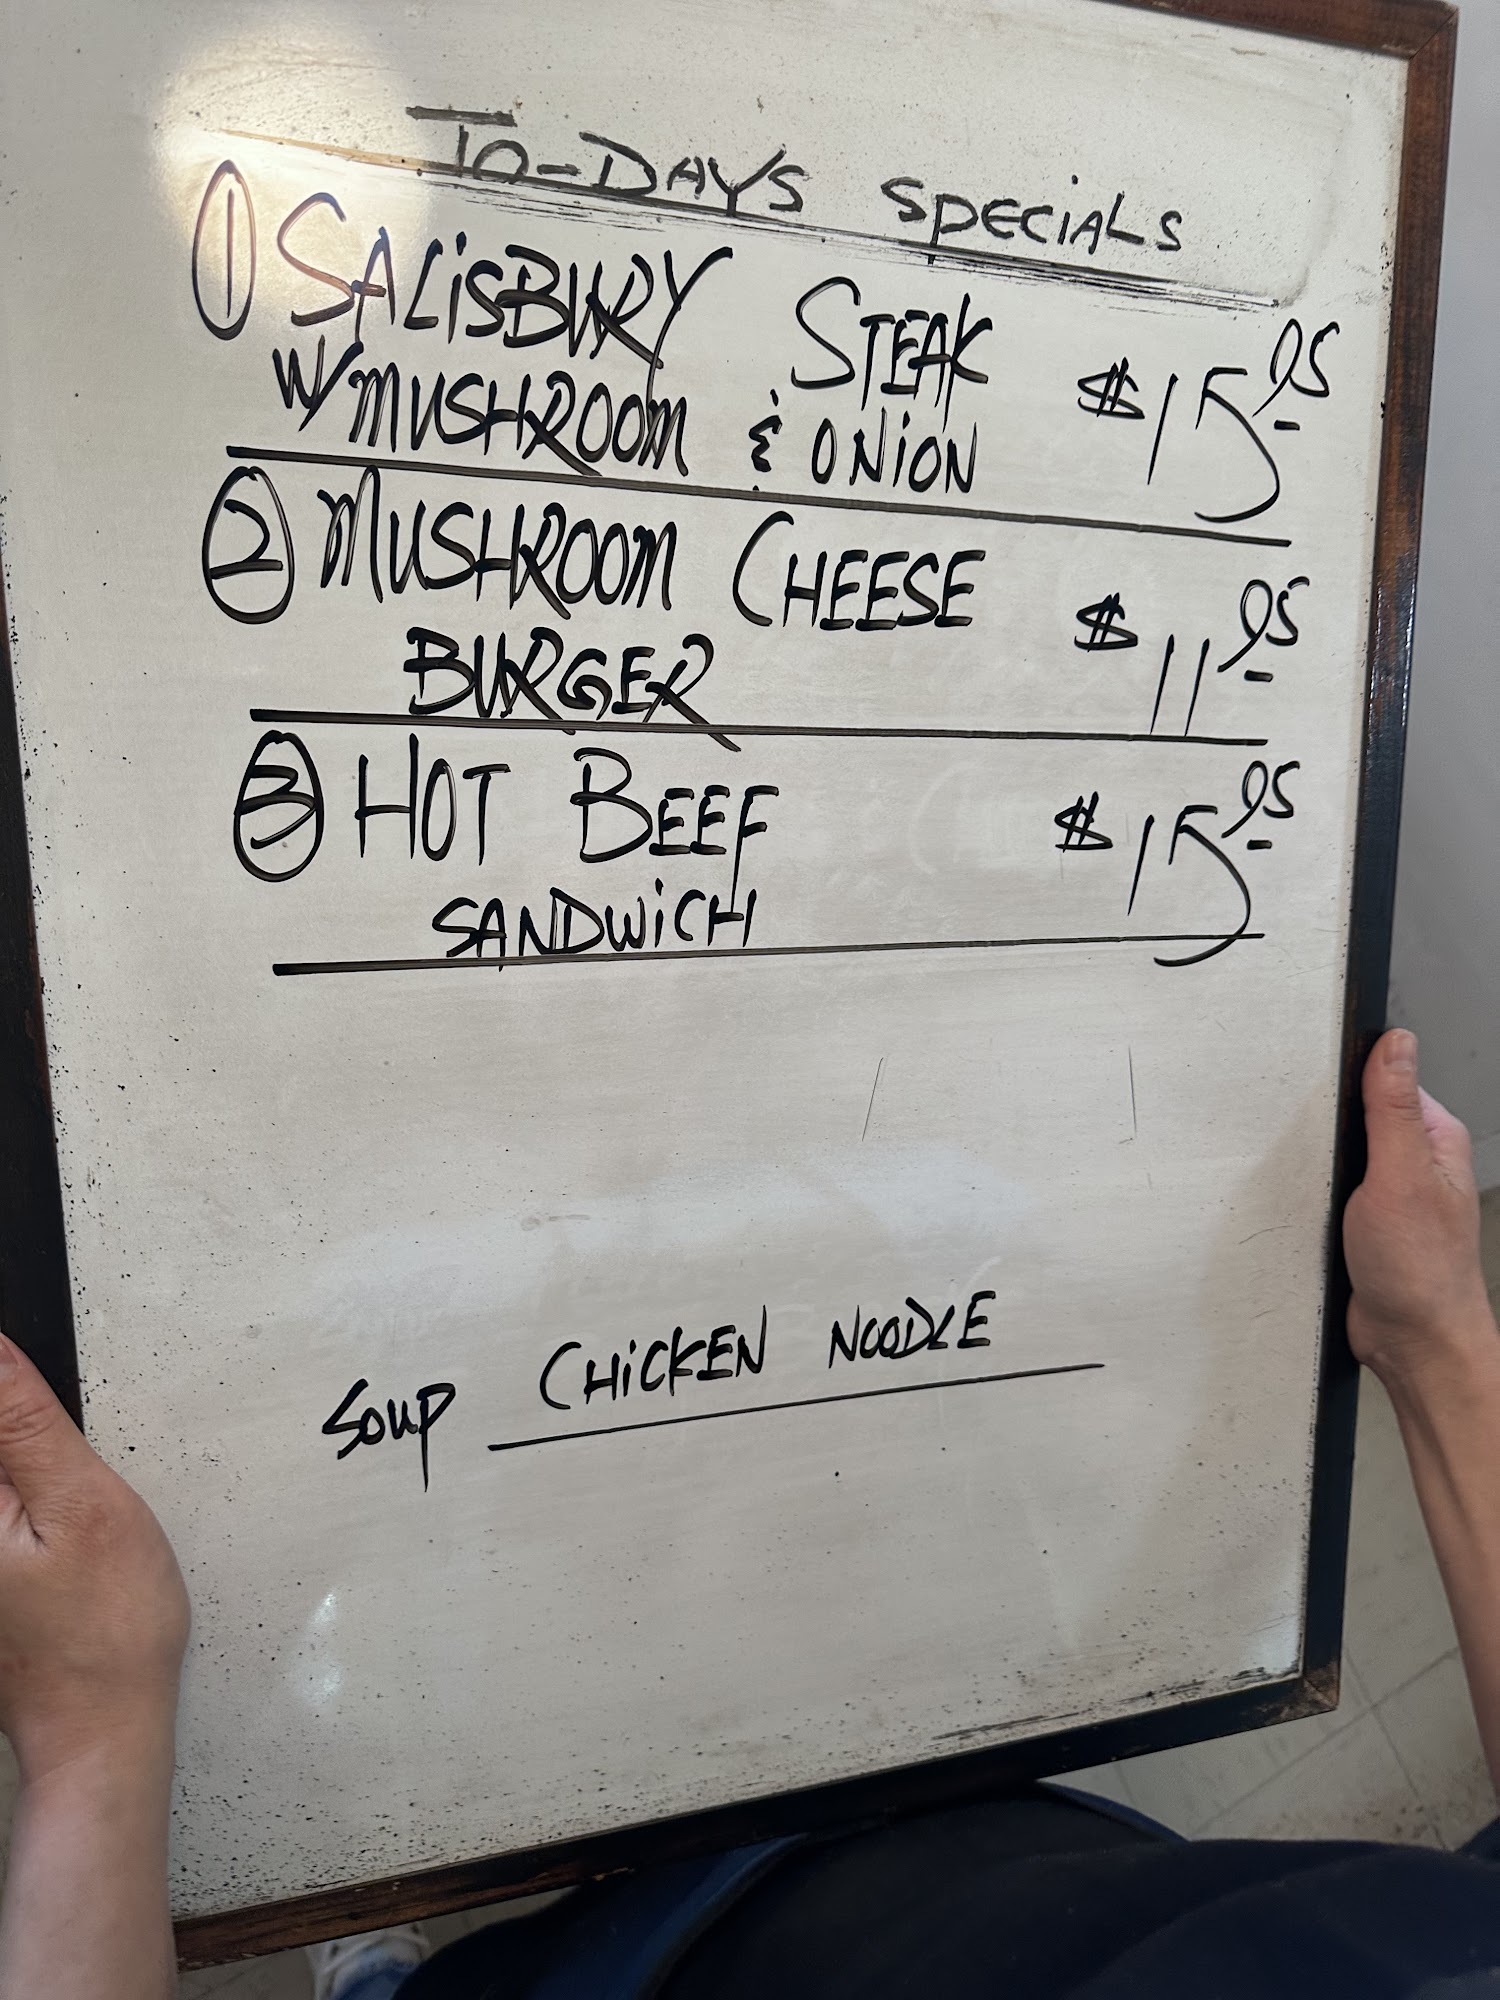 TO-DAYS SPECIALS
① SALiSBURY STEAK
W/MUSHROOM & ONiON $15.95
② MUSHROOM CHEESE
BURGER $11.95
③ HOT BEEF $15.95
SANDWiCH
Soup CHiCKEN NOODLE